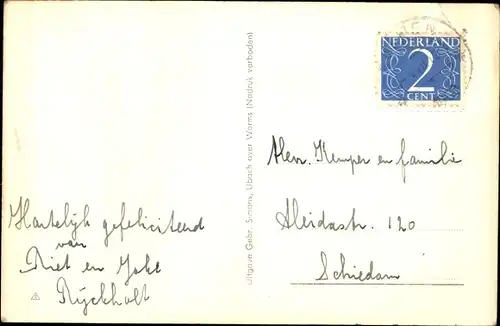 Hartelijk gefeliciteerd
van
Riet en Joke
Rijckholt
Uitgave Gebr. Simons, Ubach over Worms (Nadruk verboden)
NEDERLAND
2
CENT
Mevr. Kemper en familie
Aleidastr. 120
Schiedam